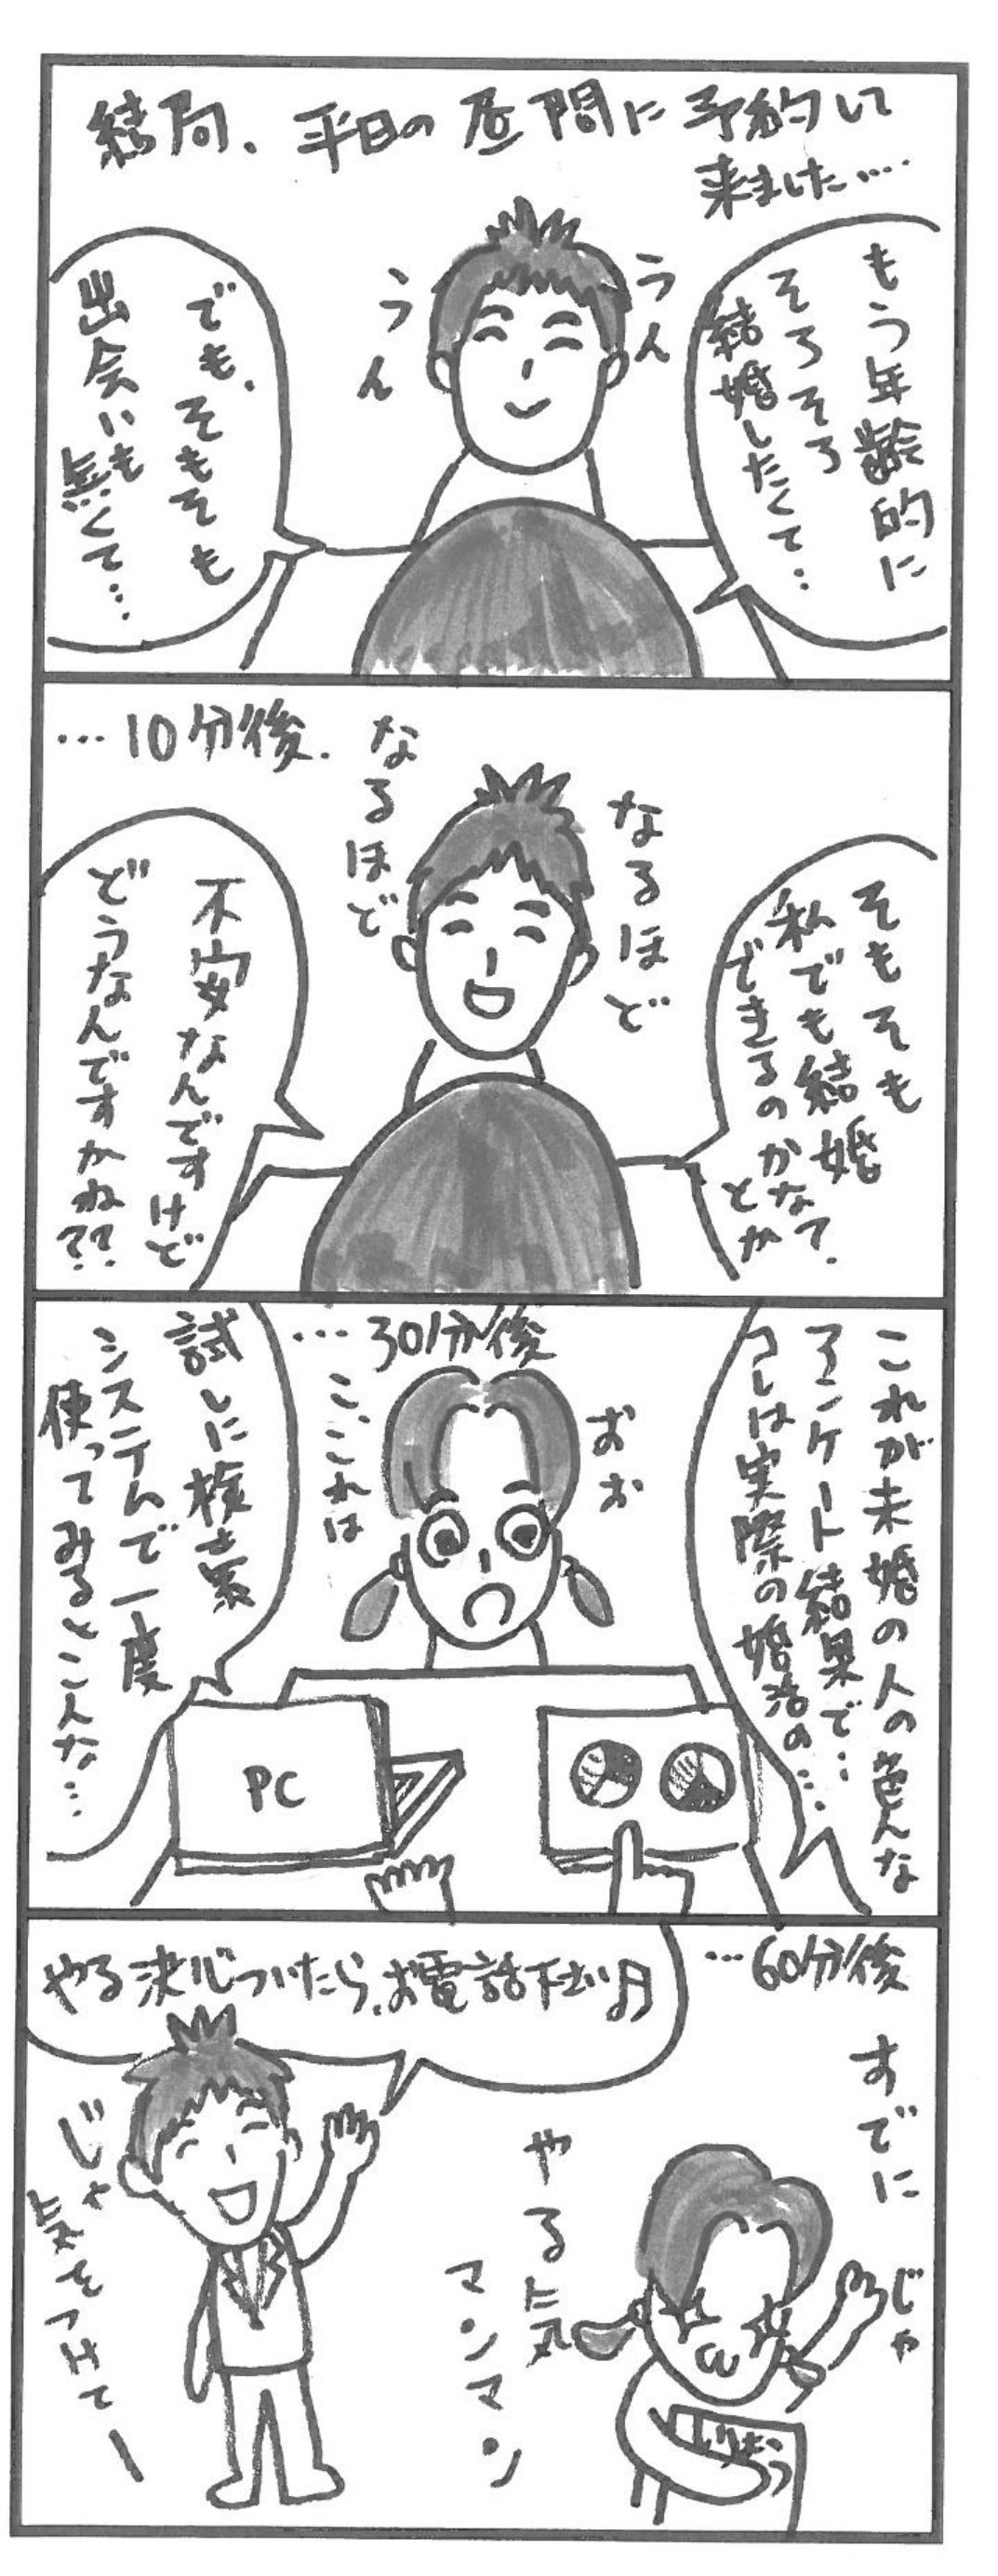 結局、平日の昼間に予約して
来ました…
もう年齢的に
そろそろ
結婚したくて…
うん
うん
でも、そもそも
出会いも
無くて…
…10分後.
そもそも
私でも結婚
できるのかな?
とか
なるほど
なるほど
不安なんですけど
どうなんですかね??
…30分後
これが未婚の人の色んな
アンケート結果で…
コレは実際の婚活の…
おお
こ、これは
試しに検索
システムで一度
使ってみるとこんな…
PC
…60分後
やる決心ついたら、お電話下さい♪
すでに
やる気
マンマン
じゃ
じゃ
気をつけてー